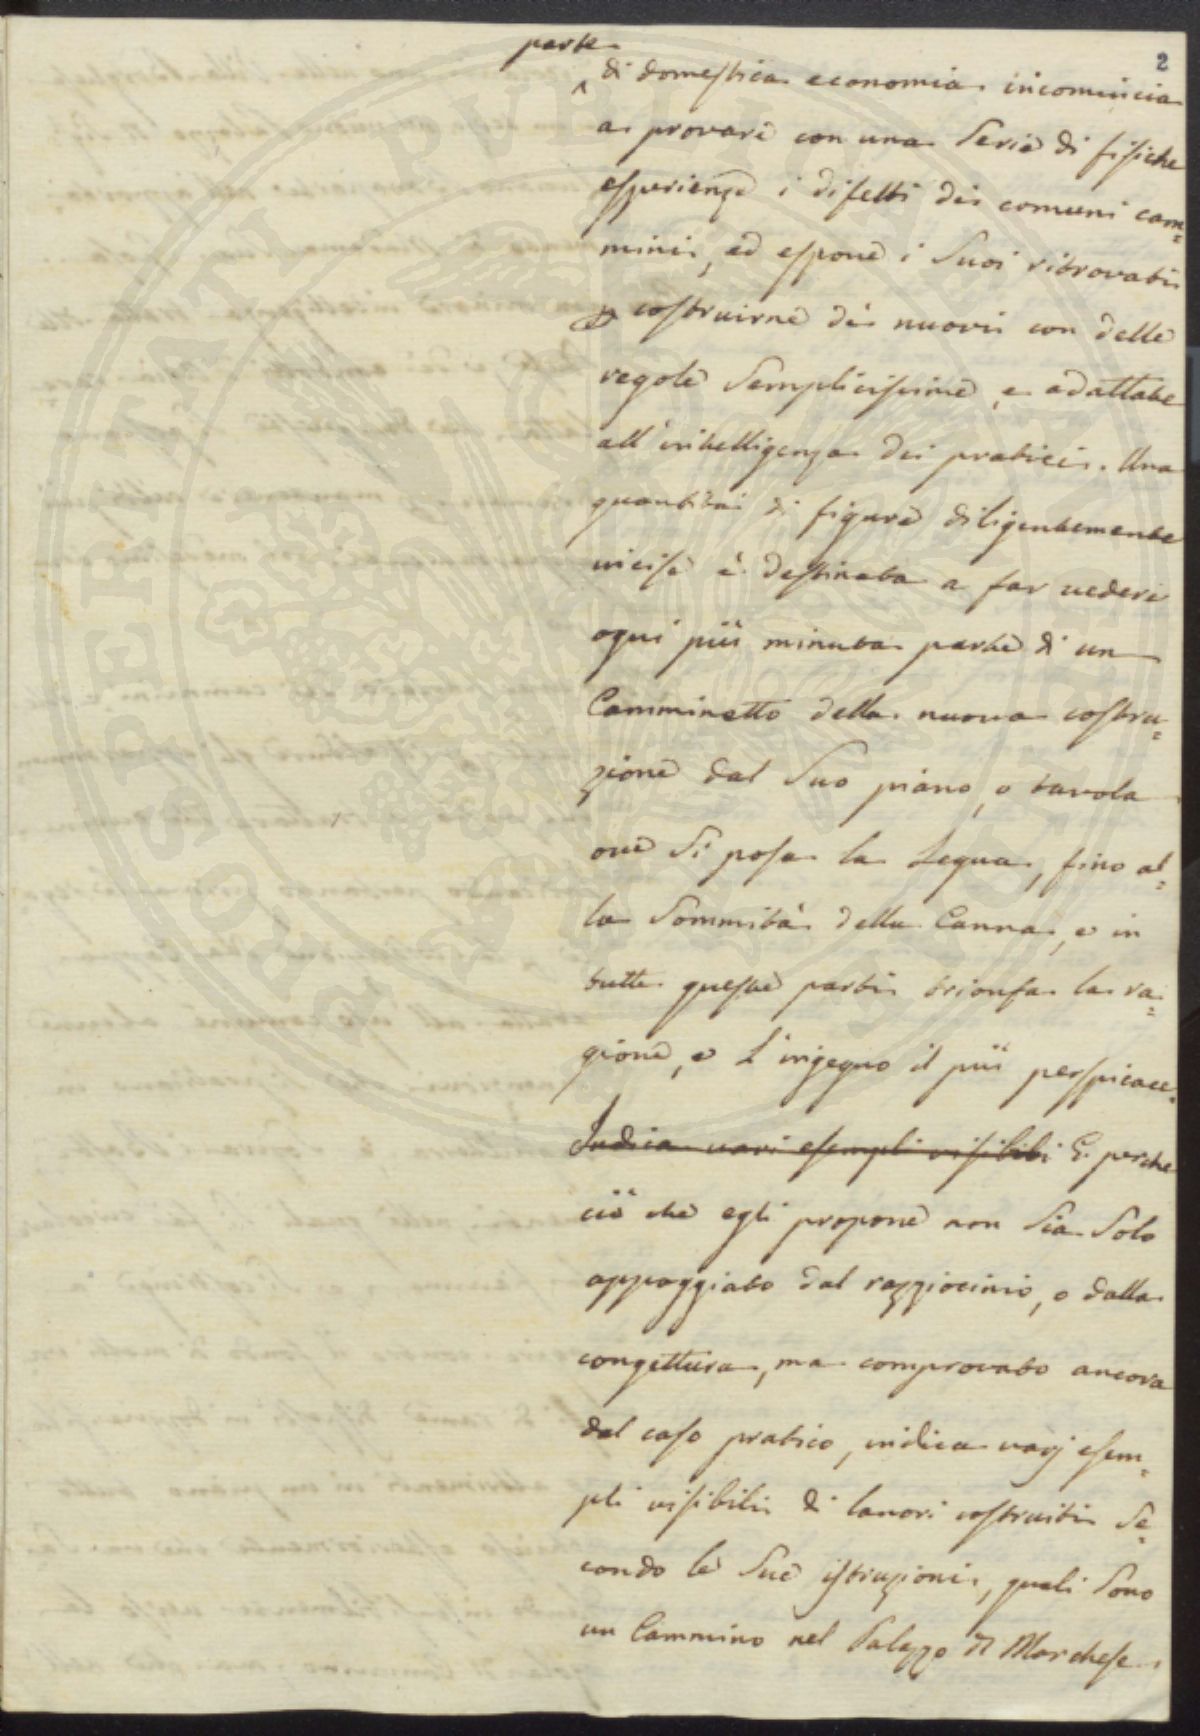 2
parte
di domestica economia incomincia
a provare con una Serie di fisiche
esperienze i difetti dei comuni cam=
mini, ed espone i Suoi ritrovati
p costruirne dei nuovi con delle
regole Semplicissime, e adattate
all'intelligenza dei pratici. Una
quantità di figure diligentemente
incise è destinata a far vedere
ogni più minuta parte di un
Camminetto della nuova costru=
zione dal Suo piano, o tavola
ove Si posa la Legna, fino al=
la Sommità della Canna, e in
tutte queste parti trionfa la ra=
gione, e L'ingegno il più perspicace.
Indica vari esempli visibili E perche
ciò che egli propone non Sia Solo
appoggiato dal razziocinio, o dalla
congettura, ma comprovato ancora
dal caso pratico, indica varj esem=
pli visibili di lavori costruiti Se=
condo le Sue istruzioni, quali Sono
un Cammino nel Palazzo Marchese
POSTERITATI PVBLICAE